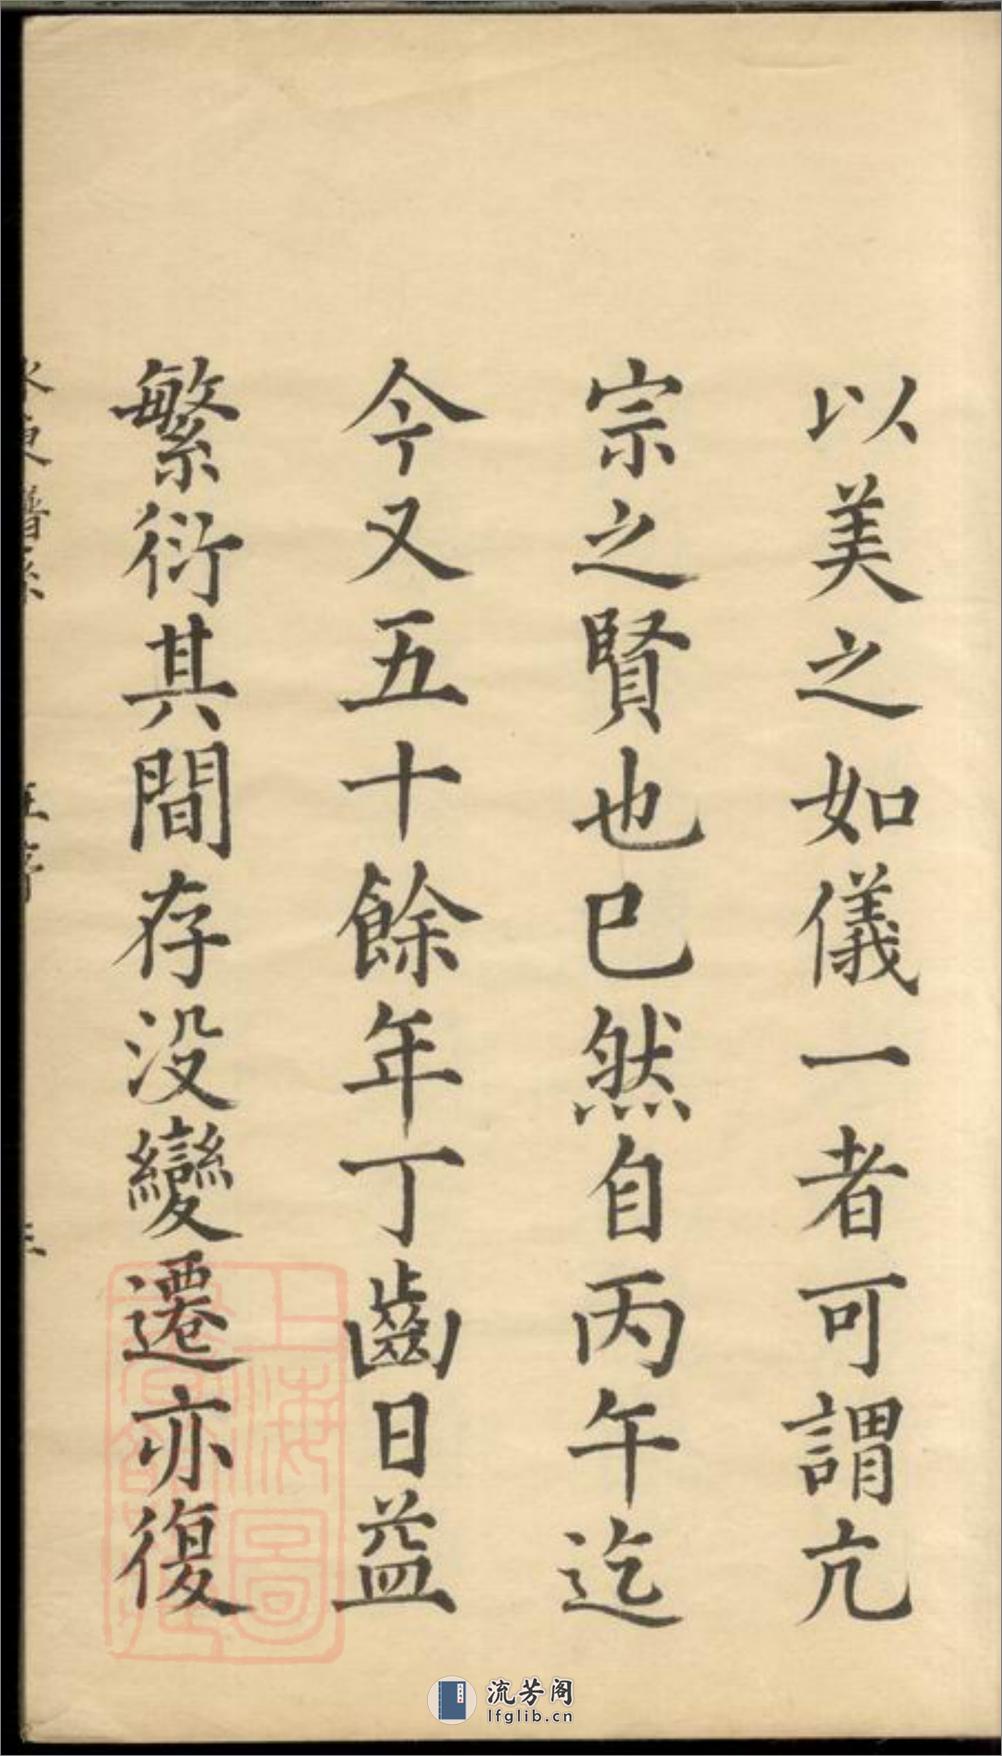 以美之如儀一者可謂亢
宗之賢也已然自丙午迄
今又五十餘年丁齒日益
繁衍其間存没變遷亦復
上海圖
流芳阁
lfglib.cn